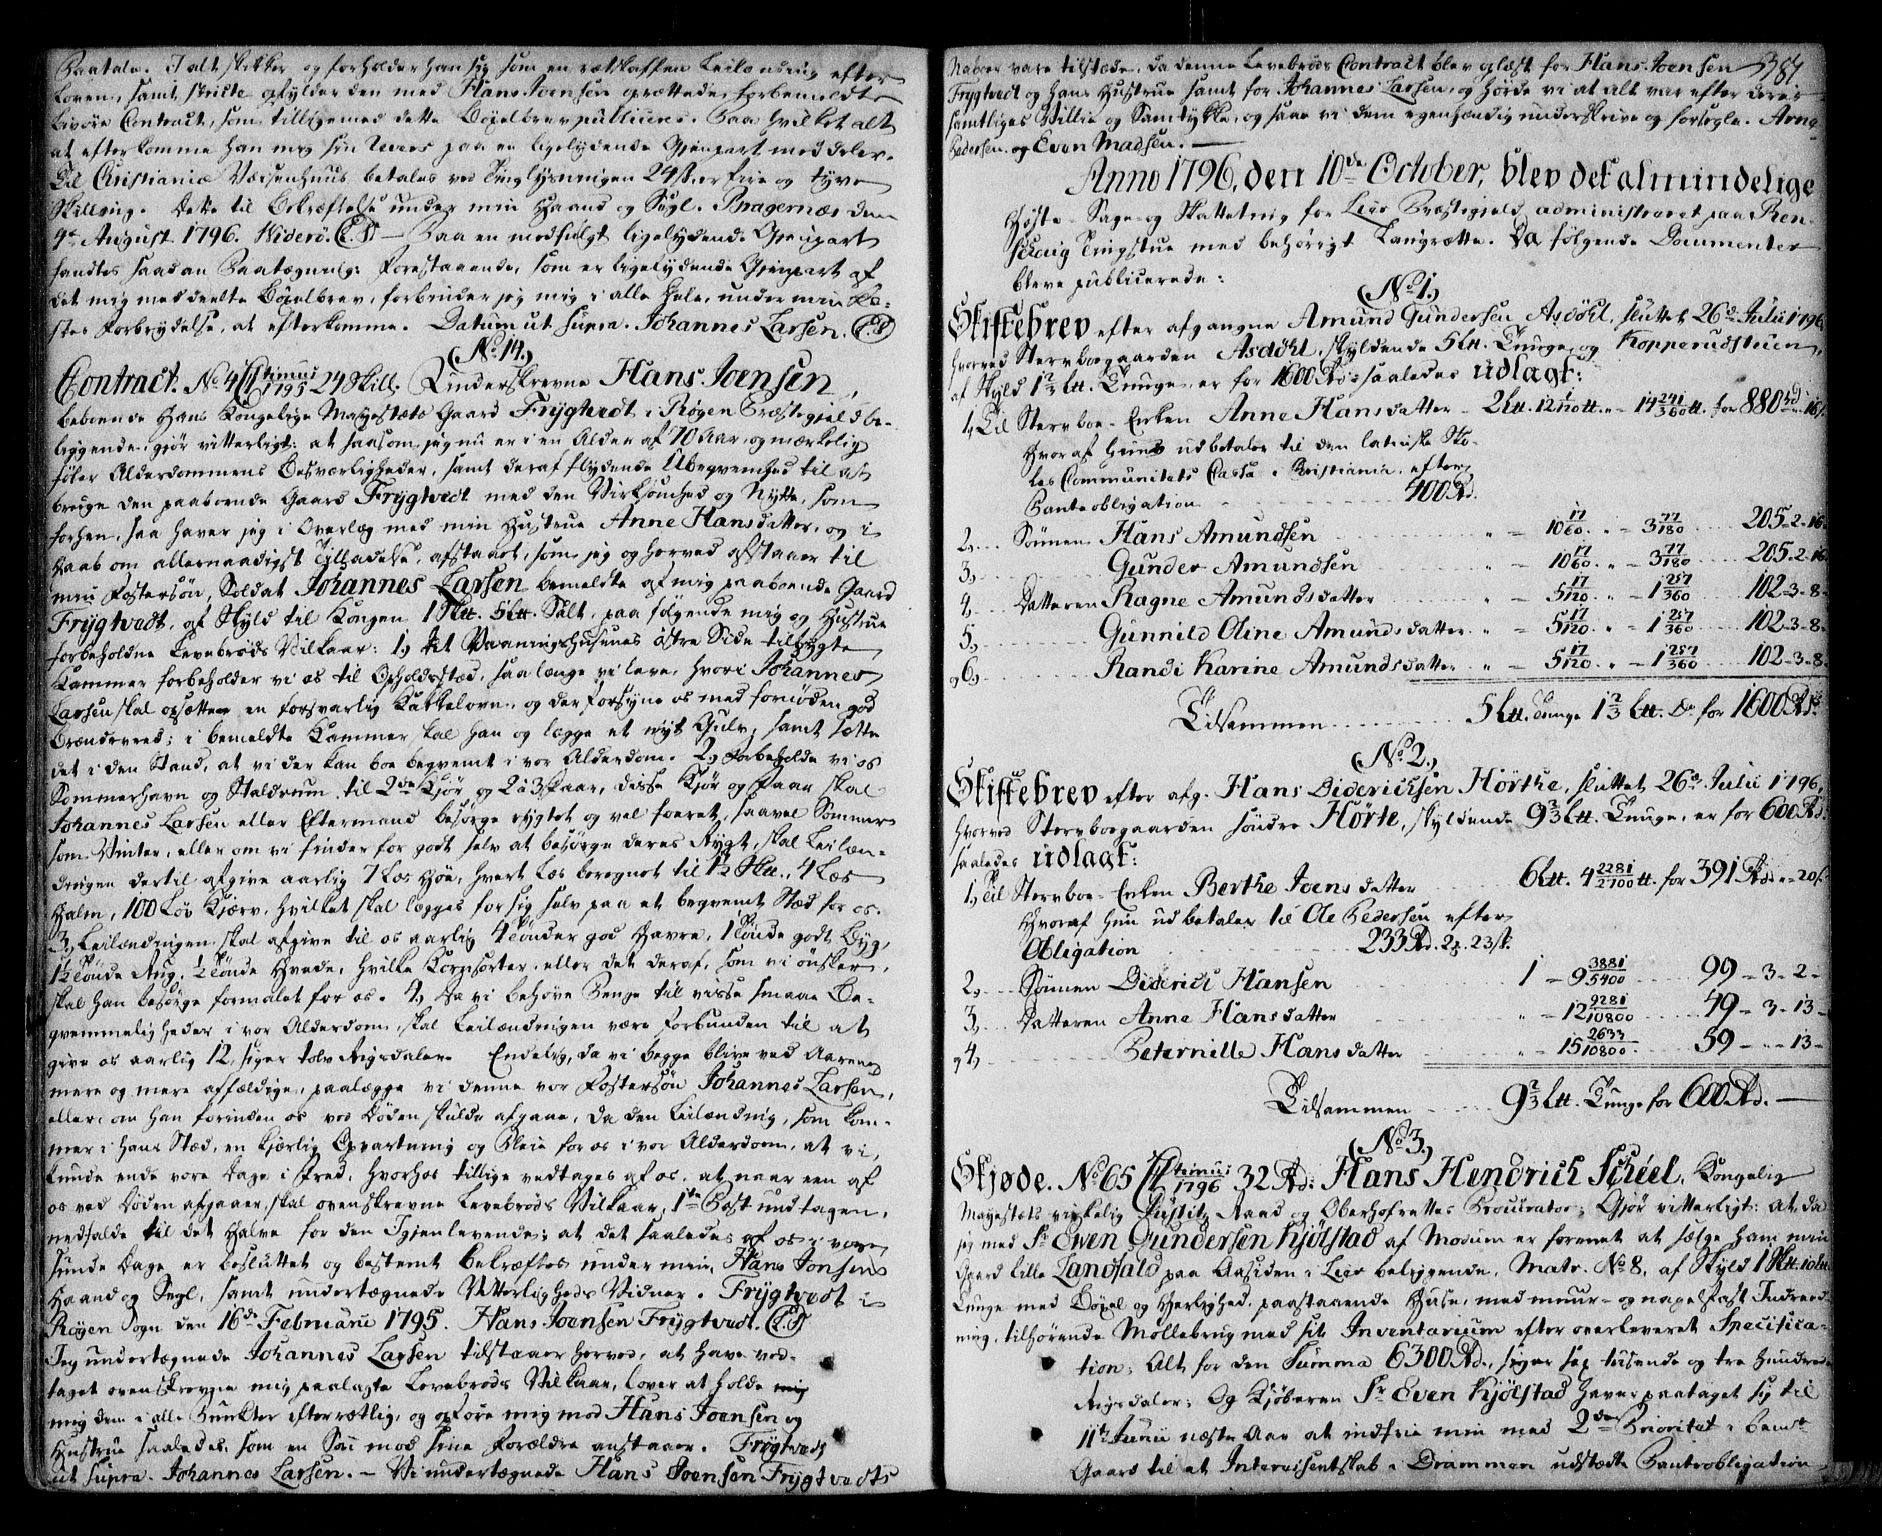 Paatale. I alt skikker og forholder han sig som en retskaffen Leilænding efter
Loven, samt skulle opfylder den med Hans Joensen oprettede forbemeldte
Livøre Contract, som tilligemed dette Böxelbrev publiceres. Paa hvilket alt
at efterkomme han mig sin Revers paa en ligelydende Gienpart meddeler.
Til Christianiæ Vaisenhuus betales ved Tinglysningen 24 s. er fire og tyve
Skilling. Dette til Bekræftelse under min Haand og Segl. Bragernæs den
9de August 1796. Widerö. (L.S.) — Paa en medfulgt ligelydende Gienpart
fandtes saadan Paategning: Forestaaende, som er ligelydende Gienpart af
det mig meddeelte Böxelbrev, forbinder jeg mig i alle Dele, under mine Fæ-
stes Forbrydelse, at efterkomme. Datum ut supra. Johannes Larsen. (L.S.)
(No. 14.)
Contract. No. 4 1795 24 Skill. Underskrevne Hans Joensen,
beboende Hans Kongelige Mayestæts Gaard Frygtvedt i Röyen Præstegield be-
liggende, giör vitterligt: at saasom jeg nu er i en Alder af 70 Aar, og mærkelig
föler Alderdommens Besværligheder, samt deraf flydende Ubeqvemhed til at
bruge den paaboende Gaard Frygtvedt med den Virksomhed og Nytte, som
forhen, saa haver jeg i Overlæg med min Hustrue Anne Hansdatter, og i
Haab om allernaadigst Tilladelse, afstaaet, som jeg og herved afstaaer til
min Fostersön, Soldat Johannes Larsen bemeldte af mig paaboende Gaard
Frygtvedt, af Skyld til Kongen 1 Skt. 5 Lt. Salt, paa fölgende mig og Hustrue
forbeholdne Levebröds Vilkaar: 1, Et Vaaningshusenes östre Side tilbygte
Kammer forbeholder vi os til Opholdsstæd, saalænge vi leve, hvori Johannes
Larsen skal opsætte en forsvarlig Kakkelovn, og der forsyne os med fornöden god
Brændeveed; i bemeldte Kammer skal han og lægge et nyt Gulv, samt sætte
det i den Stand, at vi der kan boe beqvemt i vor Alderdom. 2, Forbeholde vi os
Sommerhavn og Staldrum til 2de Kjör og 2 à 3 Faar, disse Kjör og Faar skal
Johannes Larsen eller Eftermand besörge rygtet og vel foeret, saavel Sommer
som Vinter, eller om vi finder for godt selv at besörge deres Rygt, skal Leilæn-
dingen dertil afgive aarlig 7 Læs Höe, hvert Læs beregnet til 1½ Skt., 4 Læs
Halm, 100 Löv Kjærv, hvilket skal lægges for sig selv paa et beqvemt Stæd for os.
3, Leilændingen skal afgive til os aarlig 4 Tönder god Havre, 1 Tönde godt Byg,
1½ Tönde Rug, ½ Tönde Hvede, hvilke Kornsorter, eller det deraf, som vi önsker,
skal han besörge formalet for os. 4, Da vi behöve Penge til visse smaae Be-
qvemmeligheder i vor Alderdom, skal Leilændingen være forbunden til at
give os aarlig 12, siger tolv Rigsdaler. Endelig, da vi begge blive ved Aarene
mere og mere affældige, paalægge vi denne vor Fostersön Johannes Larsen,
eller, om han forinden os ved Döden skulde afgaae, da den Leilænding, som kom-
mer i hans Stæd, en kjærlig Opvartning og Pleie for os i vor Alderdom, at vi
kunde ende vore Dage i Fred, hvorhos tillige vedtages af os, at naar een af
os ved Döden afgaaer, skal ovenskrevne Levebröds Vilkaar, 1ste Post undtagen,
nedfalde til det Halve for den Igjenlevende; at det saaledes af os i vore
sunde Dage er besluttet og bestemt bekræftes under min Hans Jonsens
Haand og Segl, samt undertegnede Vitterligheds Vidner. Frygtvedt i
Röyen Sogn den 16de Februarii 1795. Hans Joensen Frygtvedt. (L.S.)
Jeg undertegnede Johannes Larsen tilstaaer herved, at have ved-
taget ovenskrevne mig paalagte Levebröds Vilkaar, lover at holde mig
mig dem i alle Puncter efterrettlig, og opföre mig mod Hans Joensen og
Hustrue saaledes, som en Sön mod sine Forældre anstaaer. Frygtvedt
ut supra. Johannes Larsen. — Vi undertegnede Hans Joensen Frygtvedts
Naboer vare tilstæde, da denne Levebröds Contract blev oplæst for Hans Joensen 387
Frygtvedt og hans Hustrue samt for Johannes Larsen, og hörde vi at alt var efter deres
samtliges Villie og Samtykke, og saae vi dem egenhændig underskrive og forsegle. Arne
Pedersen og Even Madsen. —
Anno 1796, den 10de October, blev det almindelige
Höste- Sage- og Skatteting for Lier Præstegield administreret paa Ren-
skoug Tingstue med behörrigt Laugrette. Da fölgende Documenter
bleve publicerede:
(No. 1.)
Skiftebrev efter afgangne Amund Gundersen Asdöhl, sluttet 26de Julii 1796,
hvorved Stervboegaarden Asdöhl, skyldende 5 Lt. Tunge og Kopperudsteien,
af Skyld 1⅔ Lt. Tunge, er for 1600 Rd. saaledes udlagt:
1, Til Stervboe-Enken Anne Hansdatter – 2 Lt. 12 1/120 tt. " – 14 241/360 tt. for 880 Rd. " 16 s.
Hvoraf hun udbetaler til den latinske Sko-
les Communitets Cassa i Christiania, efter
Panteobligation 400 Rd.
2, Sönnen Hans Amundsen " – 10 17/60 " – 3 77/180 205–2–16
3, Gunder Amundsen " – 10 17/60 " – 3 77/180 205–2–16
4, Datteren Ragne Amundsdatter " – 5 17/120 " – 1 257/360 102–3–8
5, Gunnild Oline Amundsdatter " – 5 17/120 " – 1 257/360 102–3–8
og 6, Randi Karine Amundsdatter " – 5 17/120 " – 1 257/360 102–3–8
Tilsammen 5 Lt. Tunge 1⅔ Lt. Do for 1600 Rd.
(No. 2.)
Skiftebrev efter afg. Hans Diderichsen Hörthe, sluttet 26de Julii 1796,
hvorved Stervboegaarden söndre Hörte, skyldende 9⅔ Lt. Tunge, er for 600 Rd.
saaledes udlagt:
1, Til Stervboe-Enken Berthe Joensdatter 6 Lt. 4 2281/2700 tt. for 391 Rd. " 20 s.
Hvoraf hun udbetaler til Ole Pedersen efter
Obligation 233 Rd. 2 . 23 s.
2, Sönnen Diderich Hansen 1 – 9 3881/5400 99–3–2
3, Datteren Anne Hansdatter " – 12 9281/10800 49–3–13
og 4, Peternille Hansdatter " – 15 2633/10800 59–"–13
Tilsammen 9⅔ Lt. Tunge for 600 Rd. —
(No. 3.)
Skjøde. No. 65 1796 32 Rd. Hans Hendrich Schéel, Kongelig
Mayestæts virkelig Justitz Raad og Oberhofrettes Procurator; Gjör vitterligt: at da
jeg med Sr. Ewen Gundersen Kjölstad af Modum er forenet at sælge ham min
Gaard lille Landfald paa Aasiden i Lier beliggende, Matr. No. 8, af Skyld 1 Skt. 10 Lt.
Tunge med Böxel og Herlighed, paastaaende Huse, med muur- og nagelfast Indreed-
ning, tilhörende Möllebrug med sit Inventarium efter overleveret Specifica-
tion; Alt for den Summa 6300 Rd., siger sex tusende og tre hundrede
Rigsdaler; Og Kjöberen Sr. Even Kjölstad haver paataget sig til
11te Junii næste Aar at indfrie min med 2den Prioritet i bemte
Gaard til et Interessentskab i Drammen udstædte Panteobligation